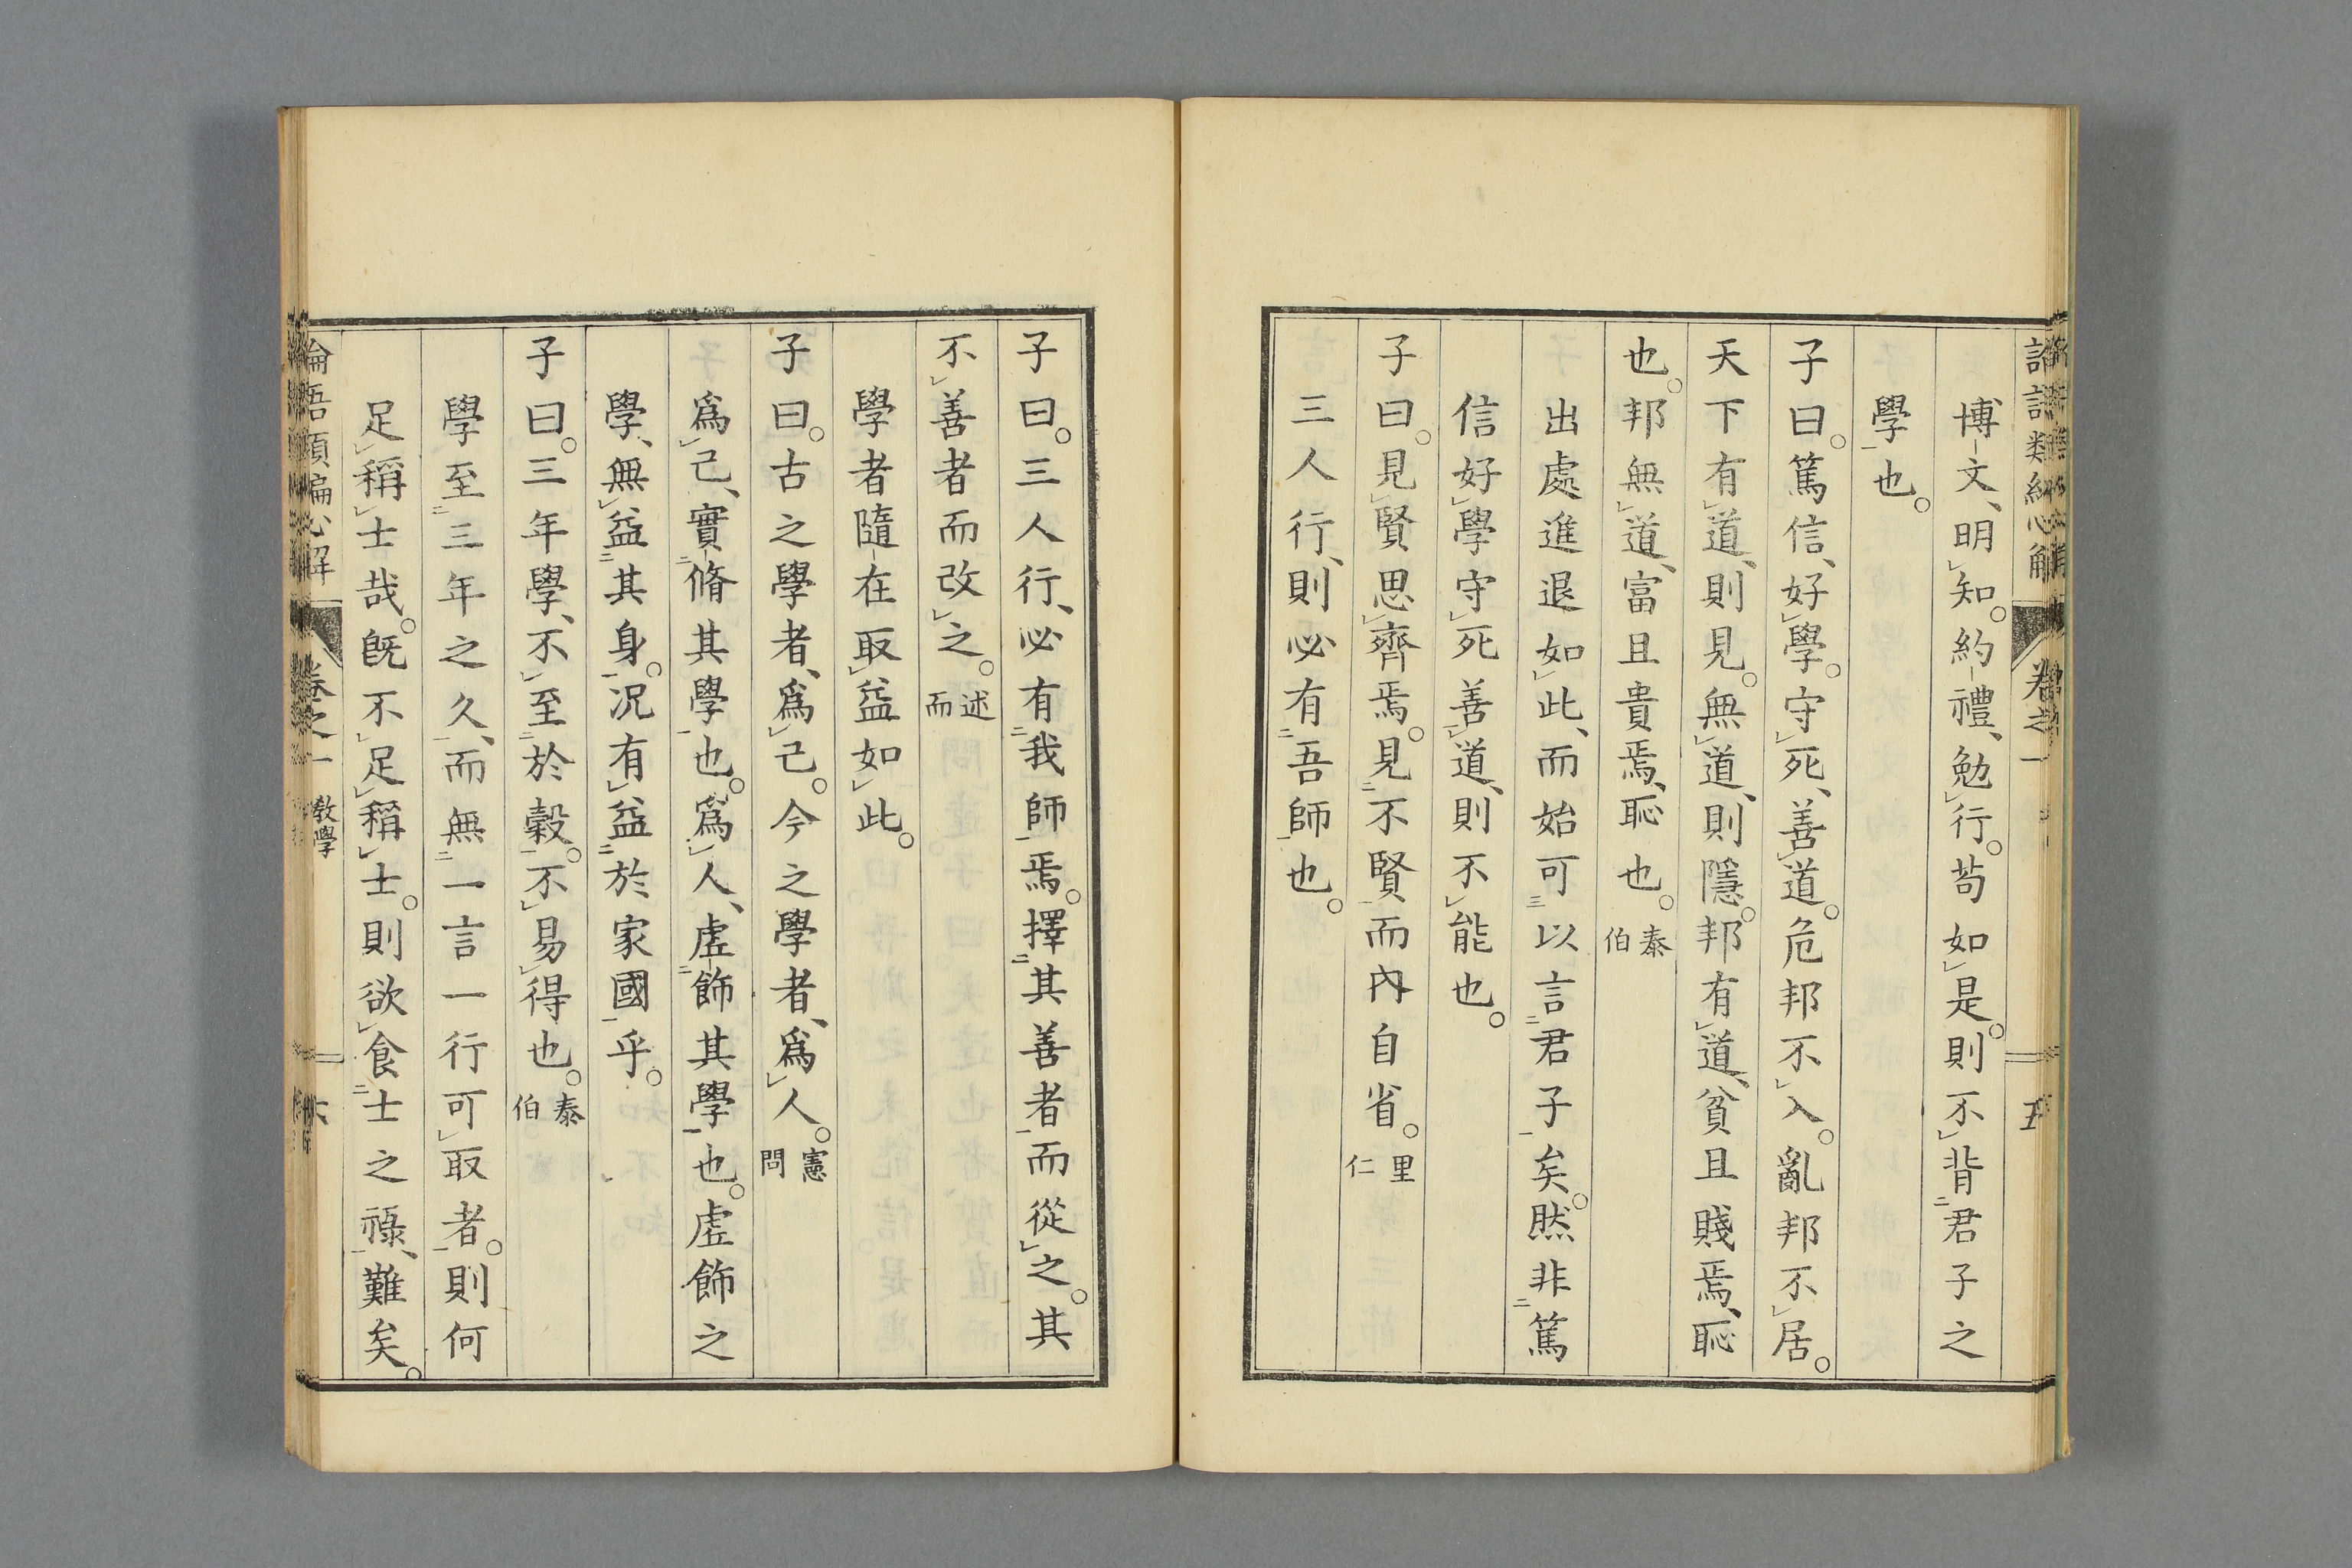 博文、明知。約禮、勉行。苟如是。則不背君子之
學也。
子曰。篤信、好學。守死、善道。危邦不入。亂邦不居。
天下有道、則見。無道、則隱。邦有道、貧且賤焉、恥
也。邦無道、富且貴焉、恥也。泰伯
出處進退如此、而始可以言君子矣。然非篤
信好學守死善道、則不能也。
子曰。見賢思齊焉。見不賢而內自省。里仁
三人行、則必有吾師也。
子曰。三人行、必有我師焉。擇其善者而從之。其
不善者而改之。述而
學者隨在取益如此。
子曰。古之學者、爲己。今之學者、爲人。憲問
爲己、實脩其學也。爲人、虛飾其學也。虛飾之
學、無益其身。況有益於家國乎。
子曰。三年學、不至於穀。不易得也。泰伯
學至三年之久、而無一言一行可取者。則何
足稱士哉。旣不足稱士。則欲食士之祿、難矣。
論語類編心解 卷之一 敎學 六